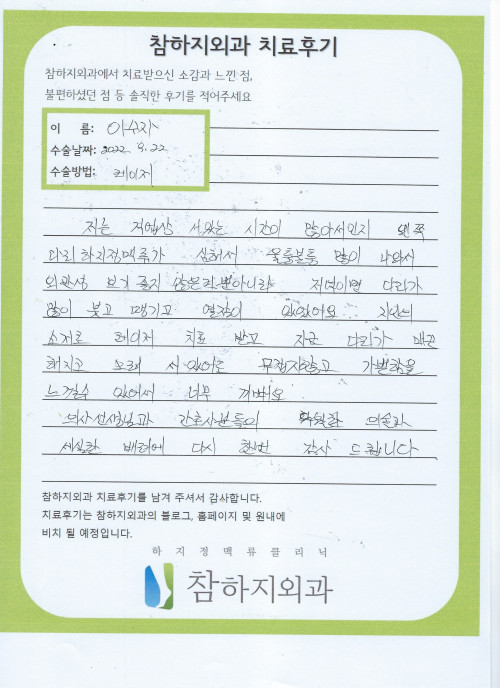 참하지외과 치료후기
참하지외과에서 치료받으신 소감과 느낀 점,
불편하셨던 점 등 솔직한 후기를 적어주세요
이 름: 이수자
수술날짜: 2022. 9. 22
수술방법: 레이저
저는 직업상 서있는 시간이 많아서인지 왼쪽
다리 하지정맥류가 심해서 울퉁불퉁 많이 나와서
외관상 보기 좋지 않은것뿐아니라 저녁이면 다리가
많이 붓고 땡기고 열감이 있었어요 지인의
소개로 레이저 치료 받고 지금 다리가 매끈
해지고 오래 서 있어도 무겁지않고 가벼움을
느낄수 있어서 너무 기뻐요
의사선생님과 간호사분들의 의술과
세심한 배려에 다시 한번 감사 드립니다
참하지외과 치료후기를 남겨 주셔서 감사합니다.
치료후기는 참하지외과의 블로그, 홈페이지 및 원내에
비치 될 예정입니다.
하지정맥류클리닉
참하지외과